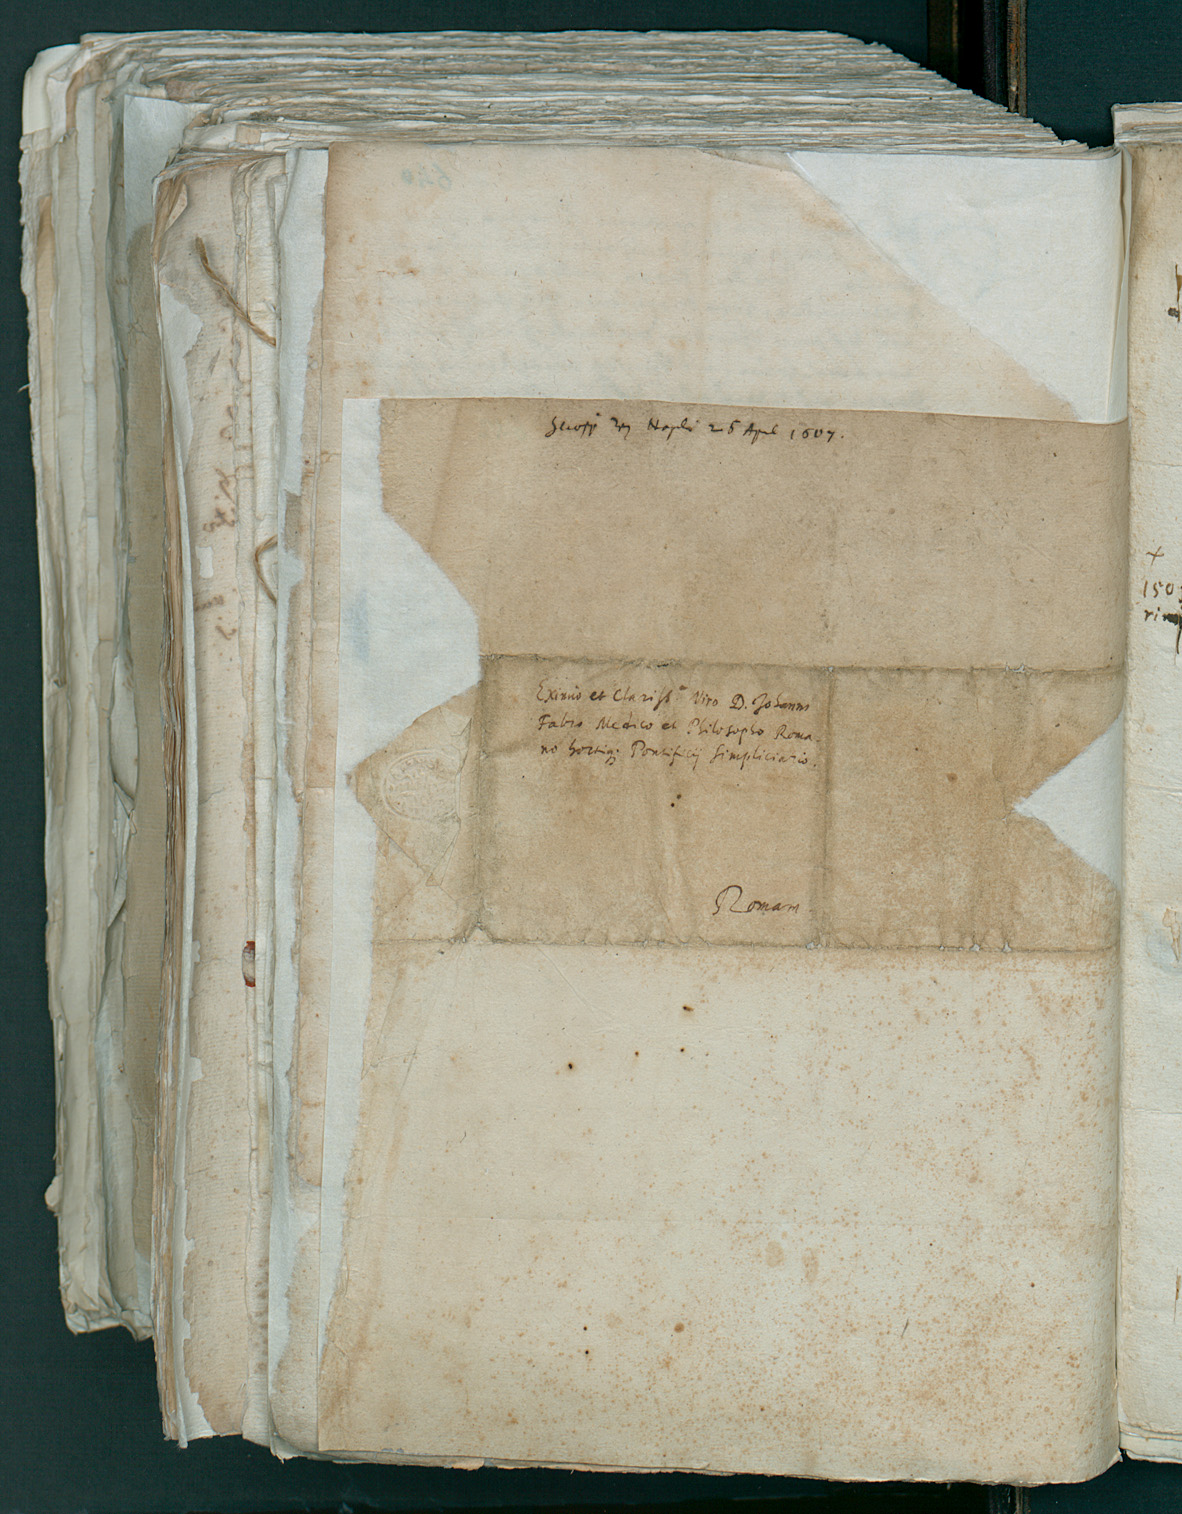 Scioppi Napli 25 Apl 1607.
Eximio et Clariss.º Viro D. Johanni
Fabro Medico et Philosopho Roma-
no hortiq; Pontificij Simpliciario.
Romam.
+
150